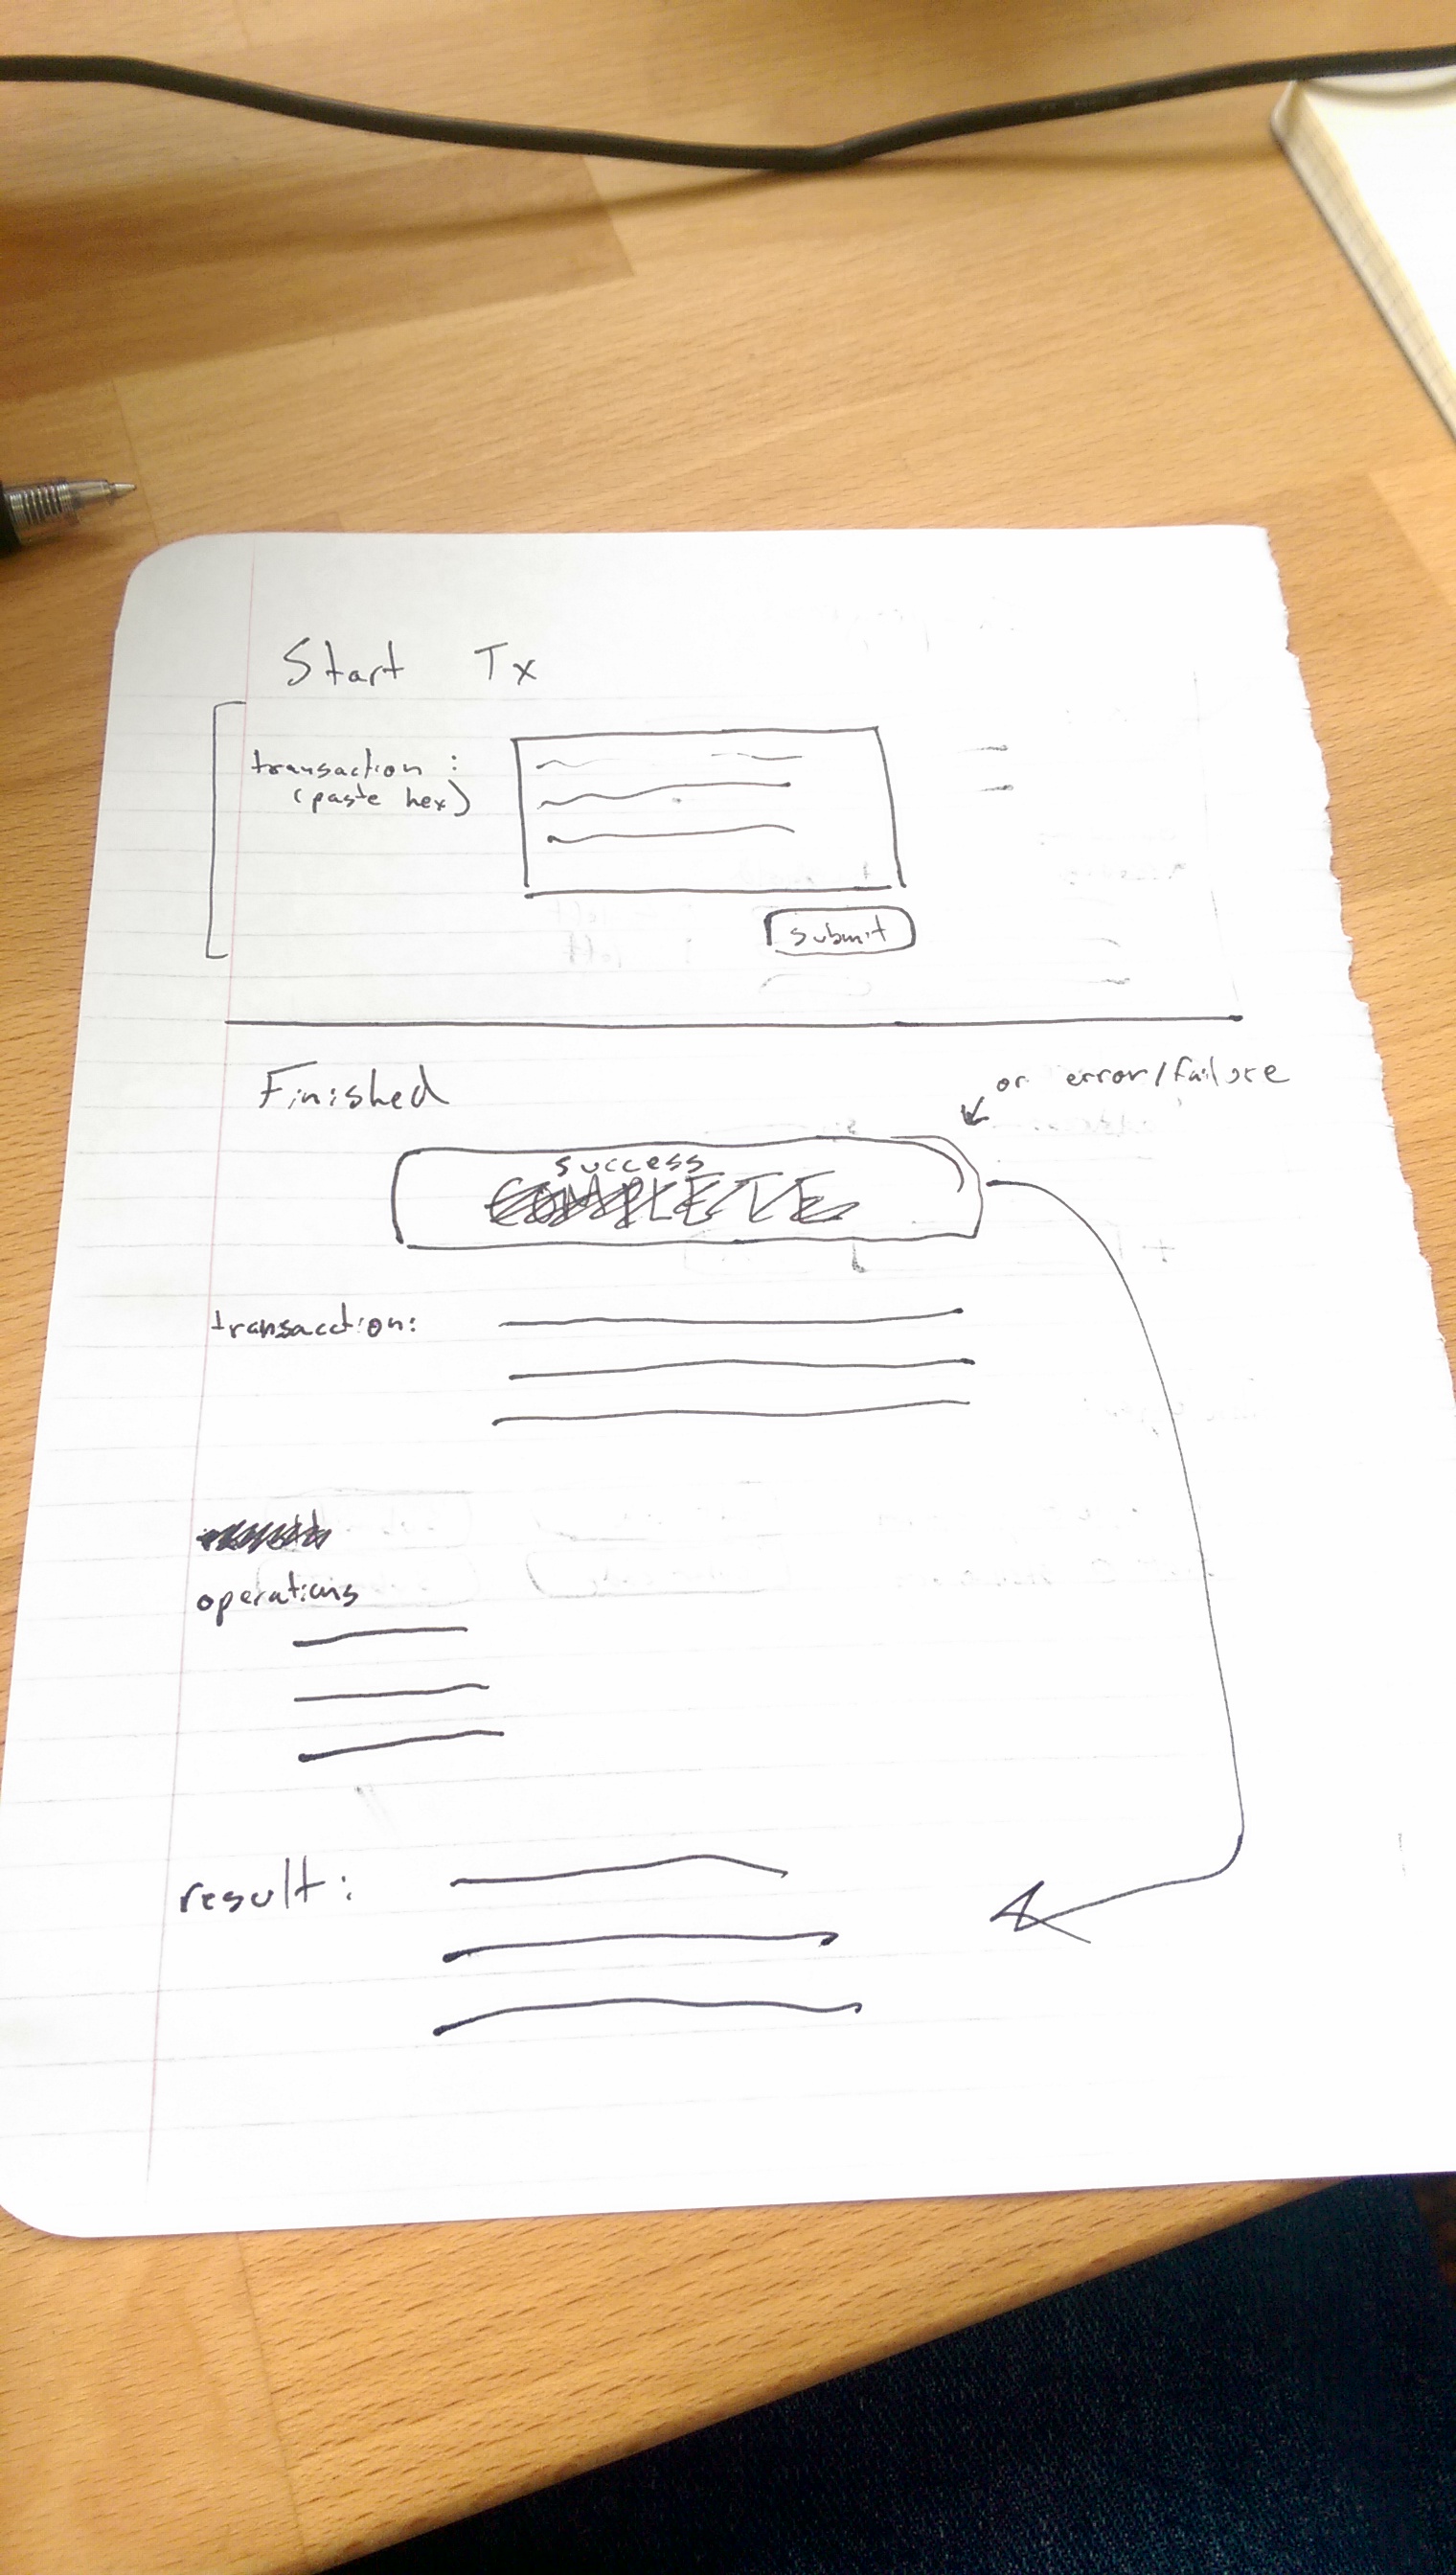 Start Tx
transaction :
(paste hex)
submit
Finished
or error/failure
success
COMPLETE
transacction:
operations
result: